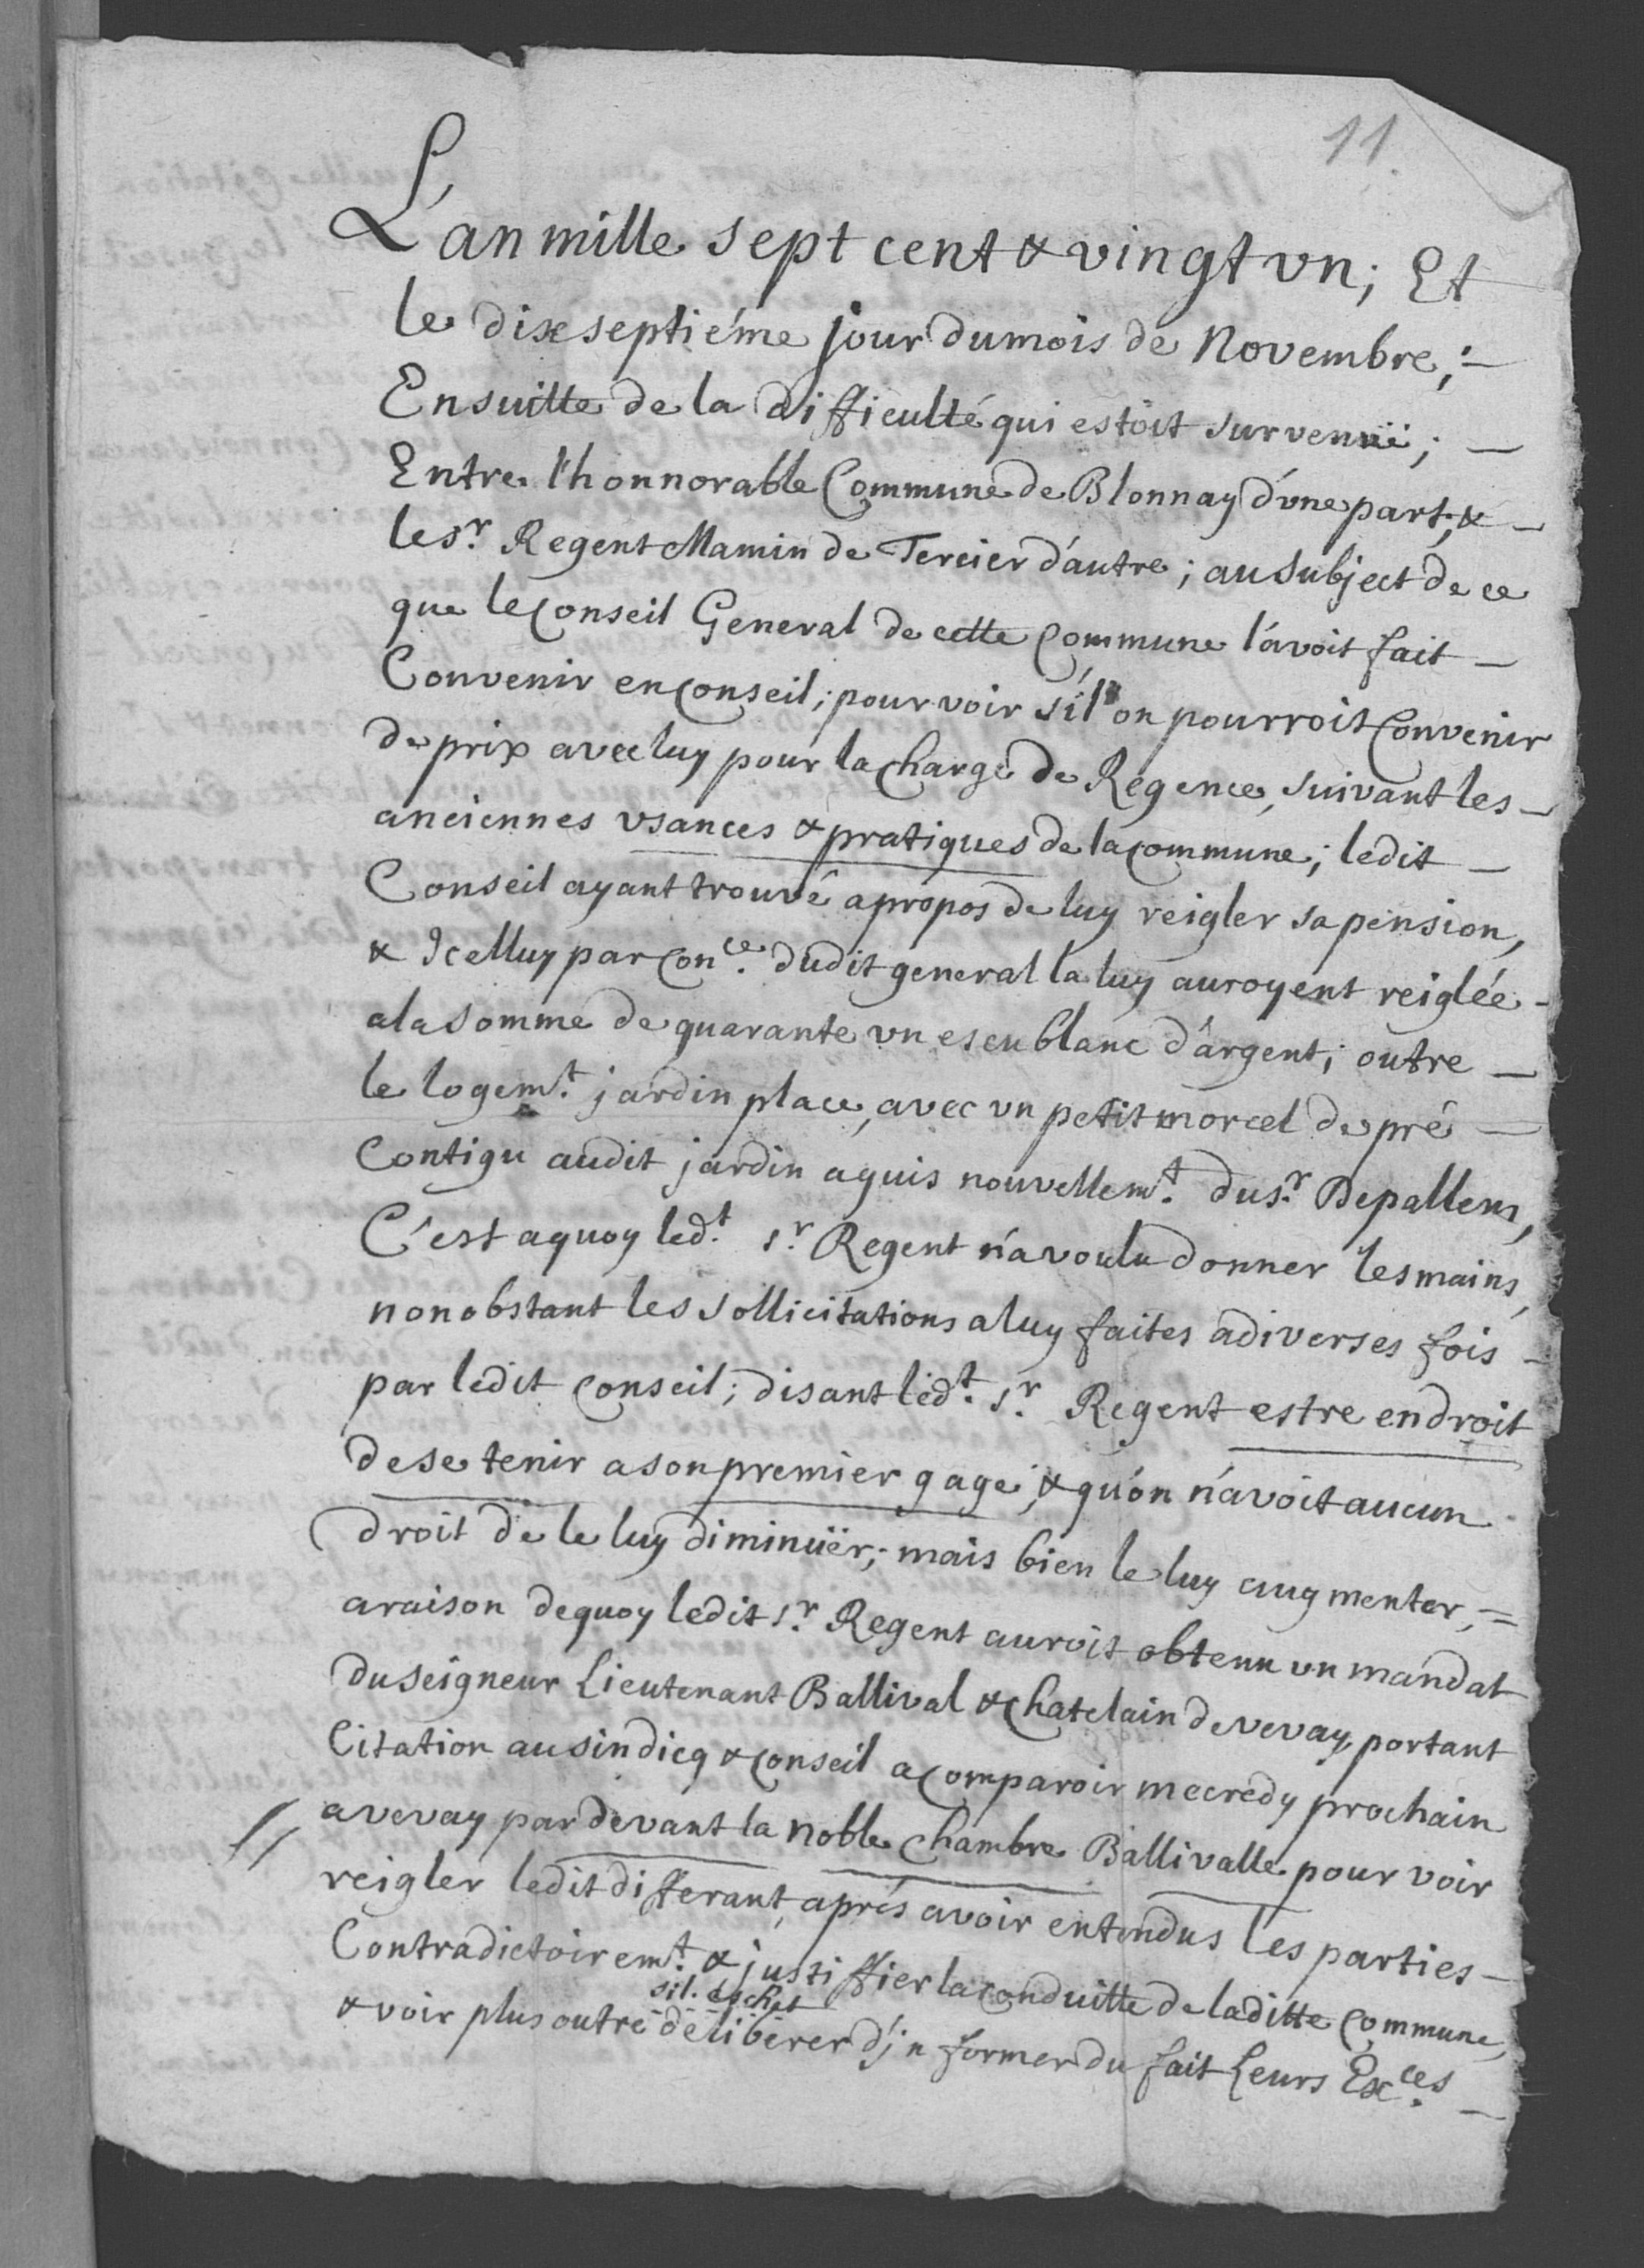 11.
L'an mille sept cent & vingt vn; Et
le dixseptiéme jour du mois de Novembre,:
Ensuitte de la difficulté qui estoit survenuë; —
Entre l'honnorable Commune de Blonnay d'vne part, & —
le sr. Regent Mamin de Tercier d'autre; au subject de ce
que le Conseil General de cette Commune l'avoit fait —
Convenir en Conseil; pour voir s'il on pourroit Convenir
de prix avec luy pour la charge de Regence, suivant les —
anciennes vsances & pratiques de la commune; ledit —
Conseil ayant trouvé a propos de luy reigler sa pension,
& Icelluy par Conce. dudit general la luy auroyent reiglée -
a la somme de quarante vn escu blanc d'argent; outre —
le logemt. jardin place, avec vn petit morcel de pré —
Contigu audit jardin aquis nouvellemt. du sr. Depallens,
C'est a quoy ledt. sr. Regent n'a voulu donner les mains,
nonobstant les sollicitations a luy faites a diverses fois -
par ledit Conseil; disant ledt. sr. Regent estre en droit
de se tenir a son premier gage, & qu'on n'avoit aucun
droit de le luy diminuër; mais bien le luy augmenter, =
a raison dequoy ledit sr. Regent auroit obtenu vn mandat
du seigneur Lieutenant Ballival & Chatelain de vevay, portant
Citation au sindicq & Conseil a Comparoir mecredy prochain
a vevay par devant la noble Chambre Ballivalle pour voir
reigler ledit differant, aprés avoir entendus les parties —
Contradictoiremt. & justiffier la Conduitte de laditte Commune,
sil. eschet
& voir plus outre délibérer d'jnformer du fait Leurs Exces. —